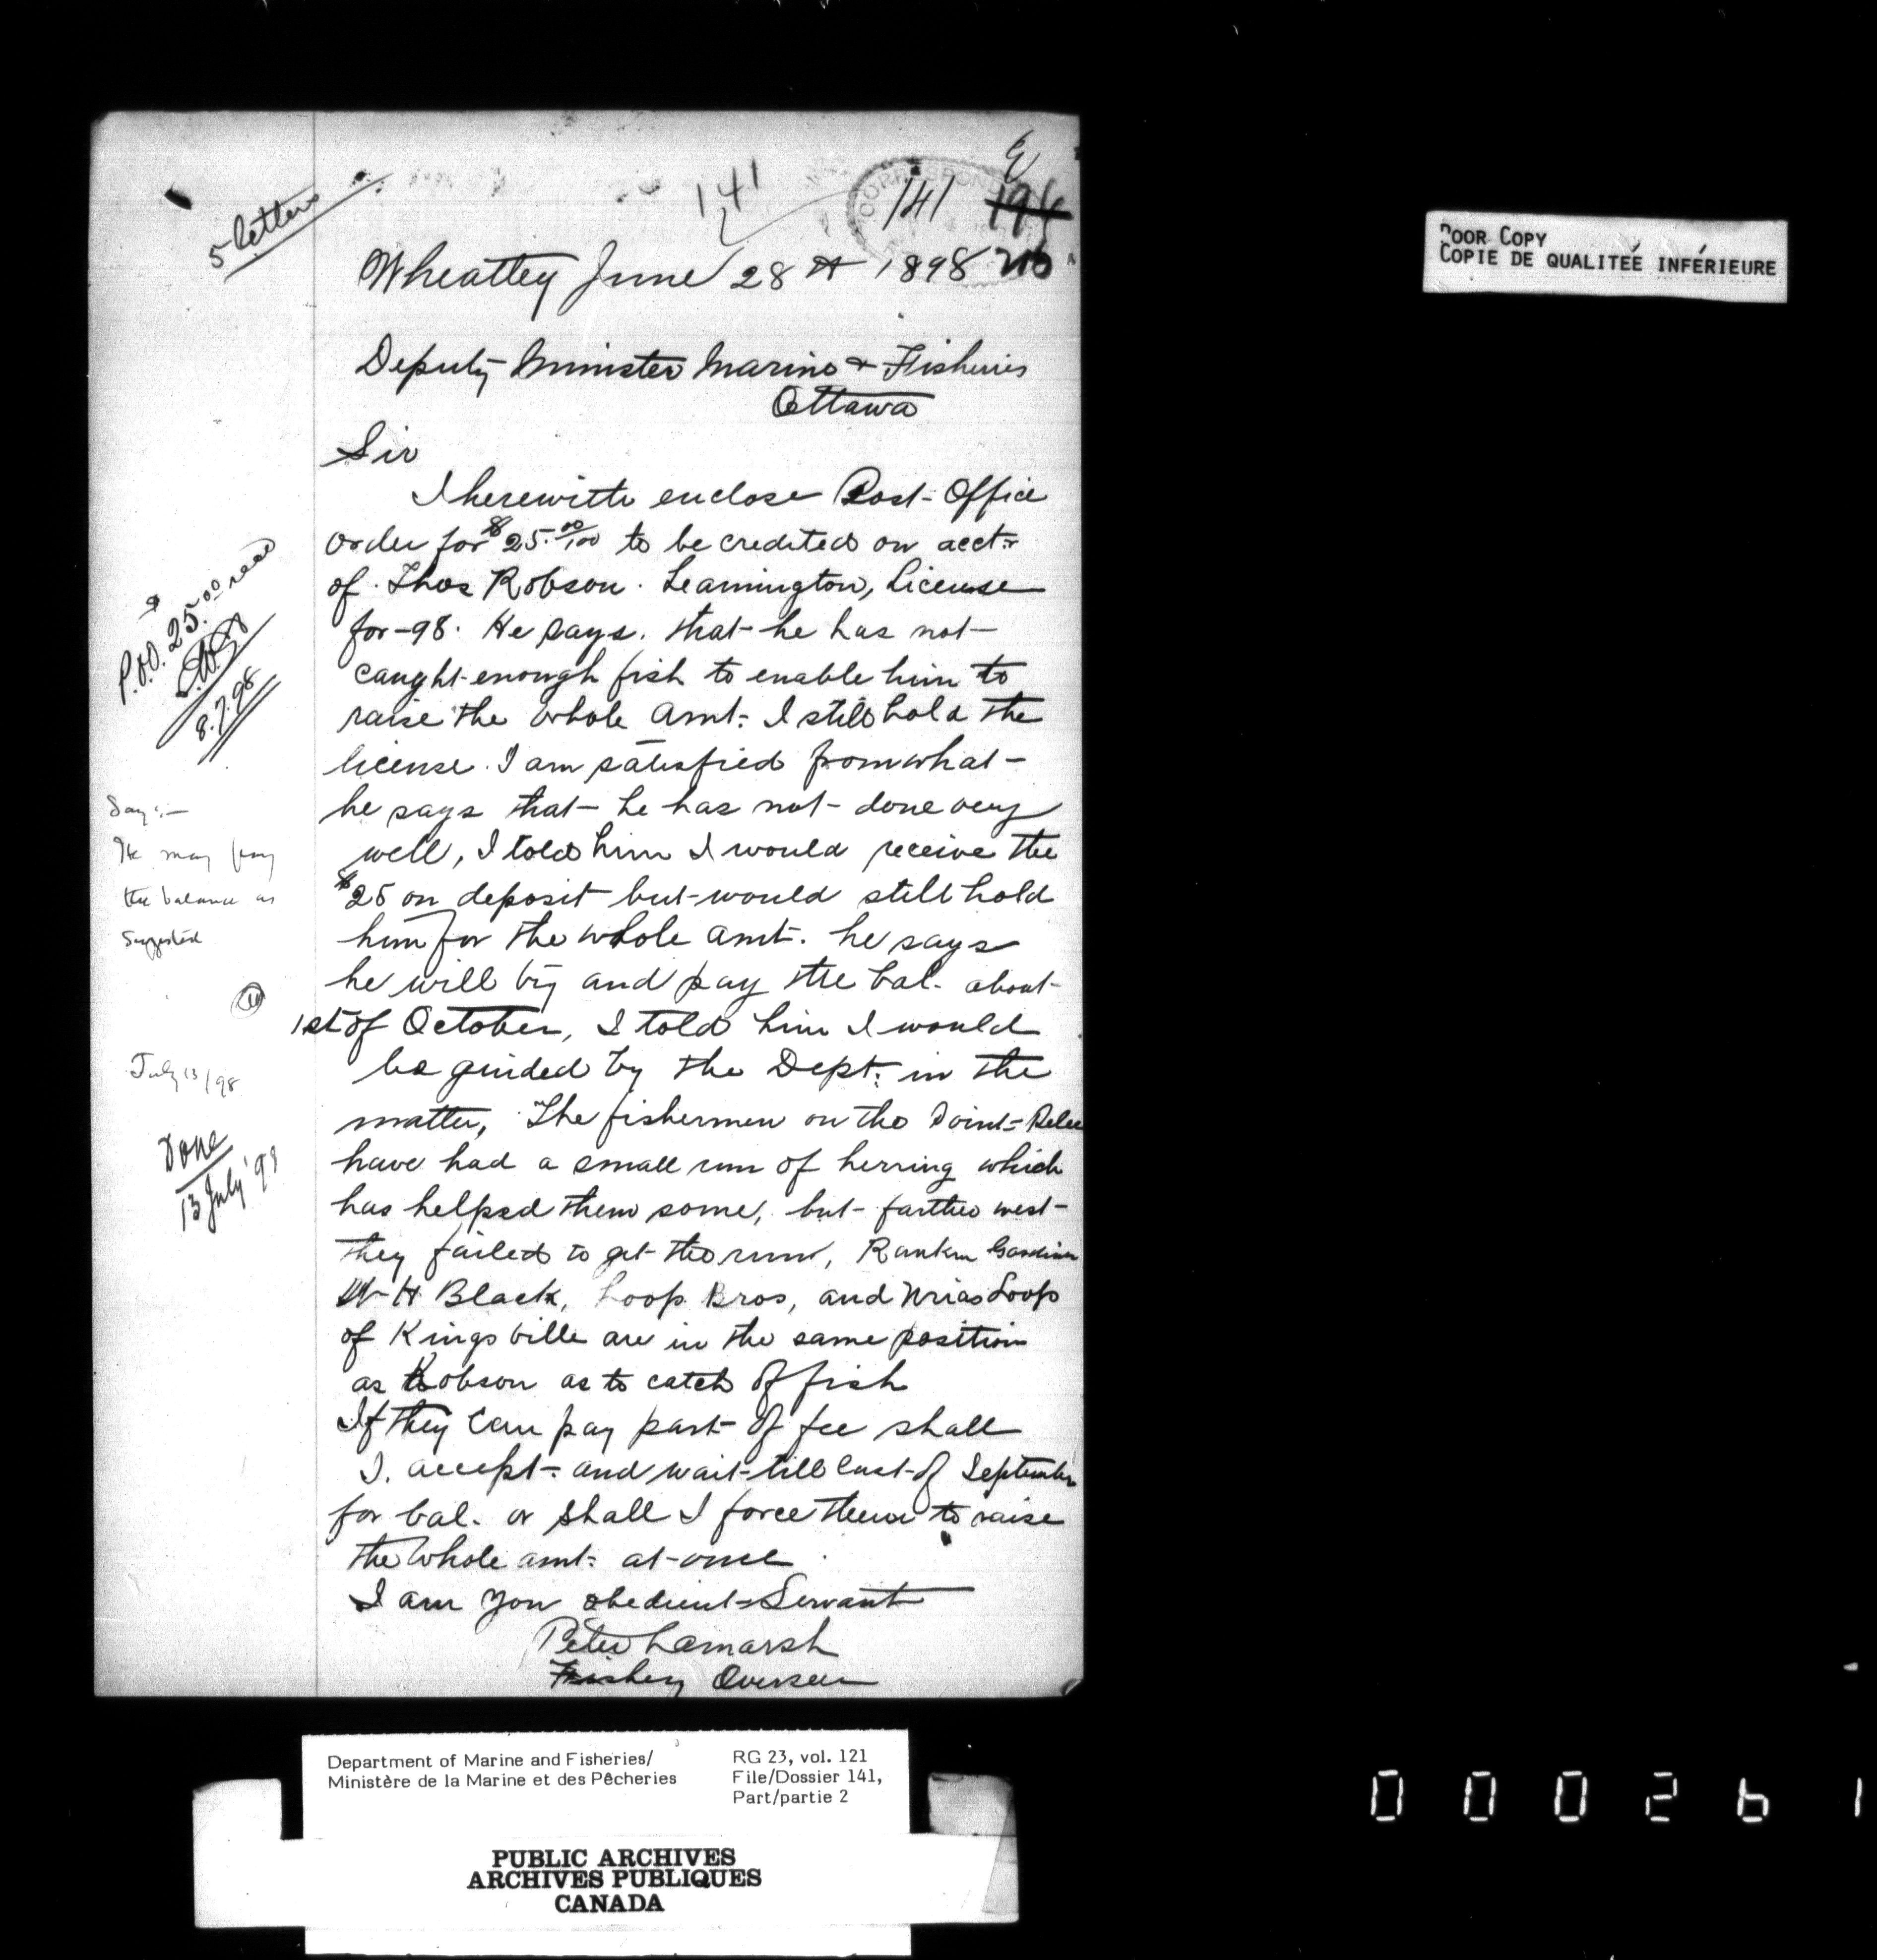 5 letters
141
141
Wheatley June 28th 1898
Deputy Minister Marine & Fisheries
Ottawa
Sir
I herewith enclose Post-Office
order for $25.00/100 to be credited on acct:
of Thos Robson. Leamington, License
for-98. He says. that he has not
caught enough fish to enable him to
raise the whole amt: I still hold the
license. I am satisfied from what
he says that he has not done very
well, I told him I would receive the
$25 on deposit but would still hold
him for the whole amt. he says
he will try and pay the bal. about
1st of October, I told him I would
be guided by the Dept: in the
matter, The fishermen on the Point-Pelee
have had a small run of herring which
has helped them some, but farther west
they failed to get the run, Rankin Gardiner
W H Black, Loop Bros, and Urias Loop
of Kingsville are in the same position
as Robson as to catch of fish
If they can pay part of fee shall
I. accept and wait till last of September
for bal. or shall I force them to raise
the whole amt: at once
I am your obedient Servant
Peter Lamarsh
Fishery Overseer
P.O.O. $25.00 recd
8.7.98
Say:-
He may pay
the balance as
suggested
July 13/98
Done
13 July '98
POOR COPY
COPIE DE QUALITEÉ INFÉRIEURE
Department of Marine and Fisheries/
Ministère de la Marine et des Pêcheries
RG 23, vol. 121
File/Dossier 141,
Part/partie 2
PUBLIC ARCHIVES
ARCHIVES PUBLIQUES
CANADA
000261